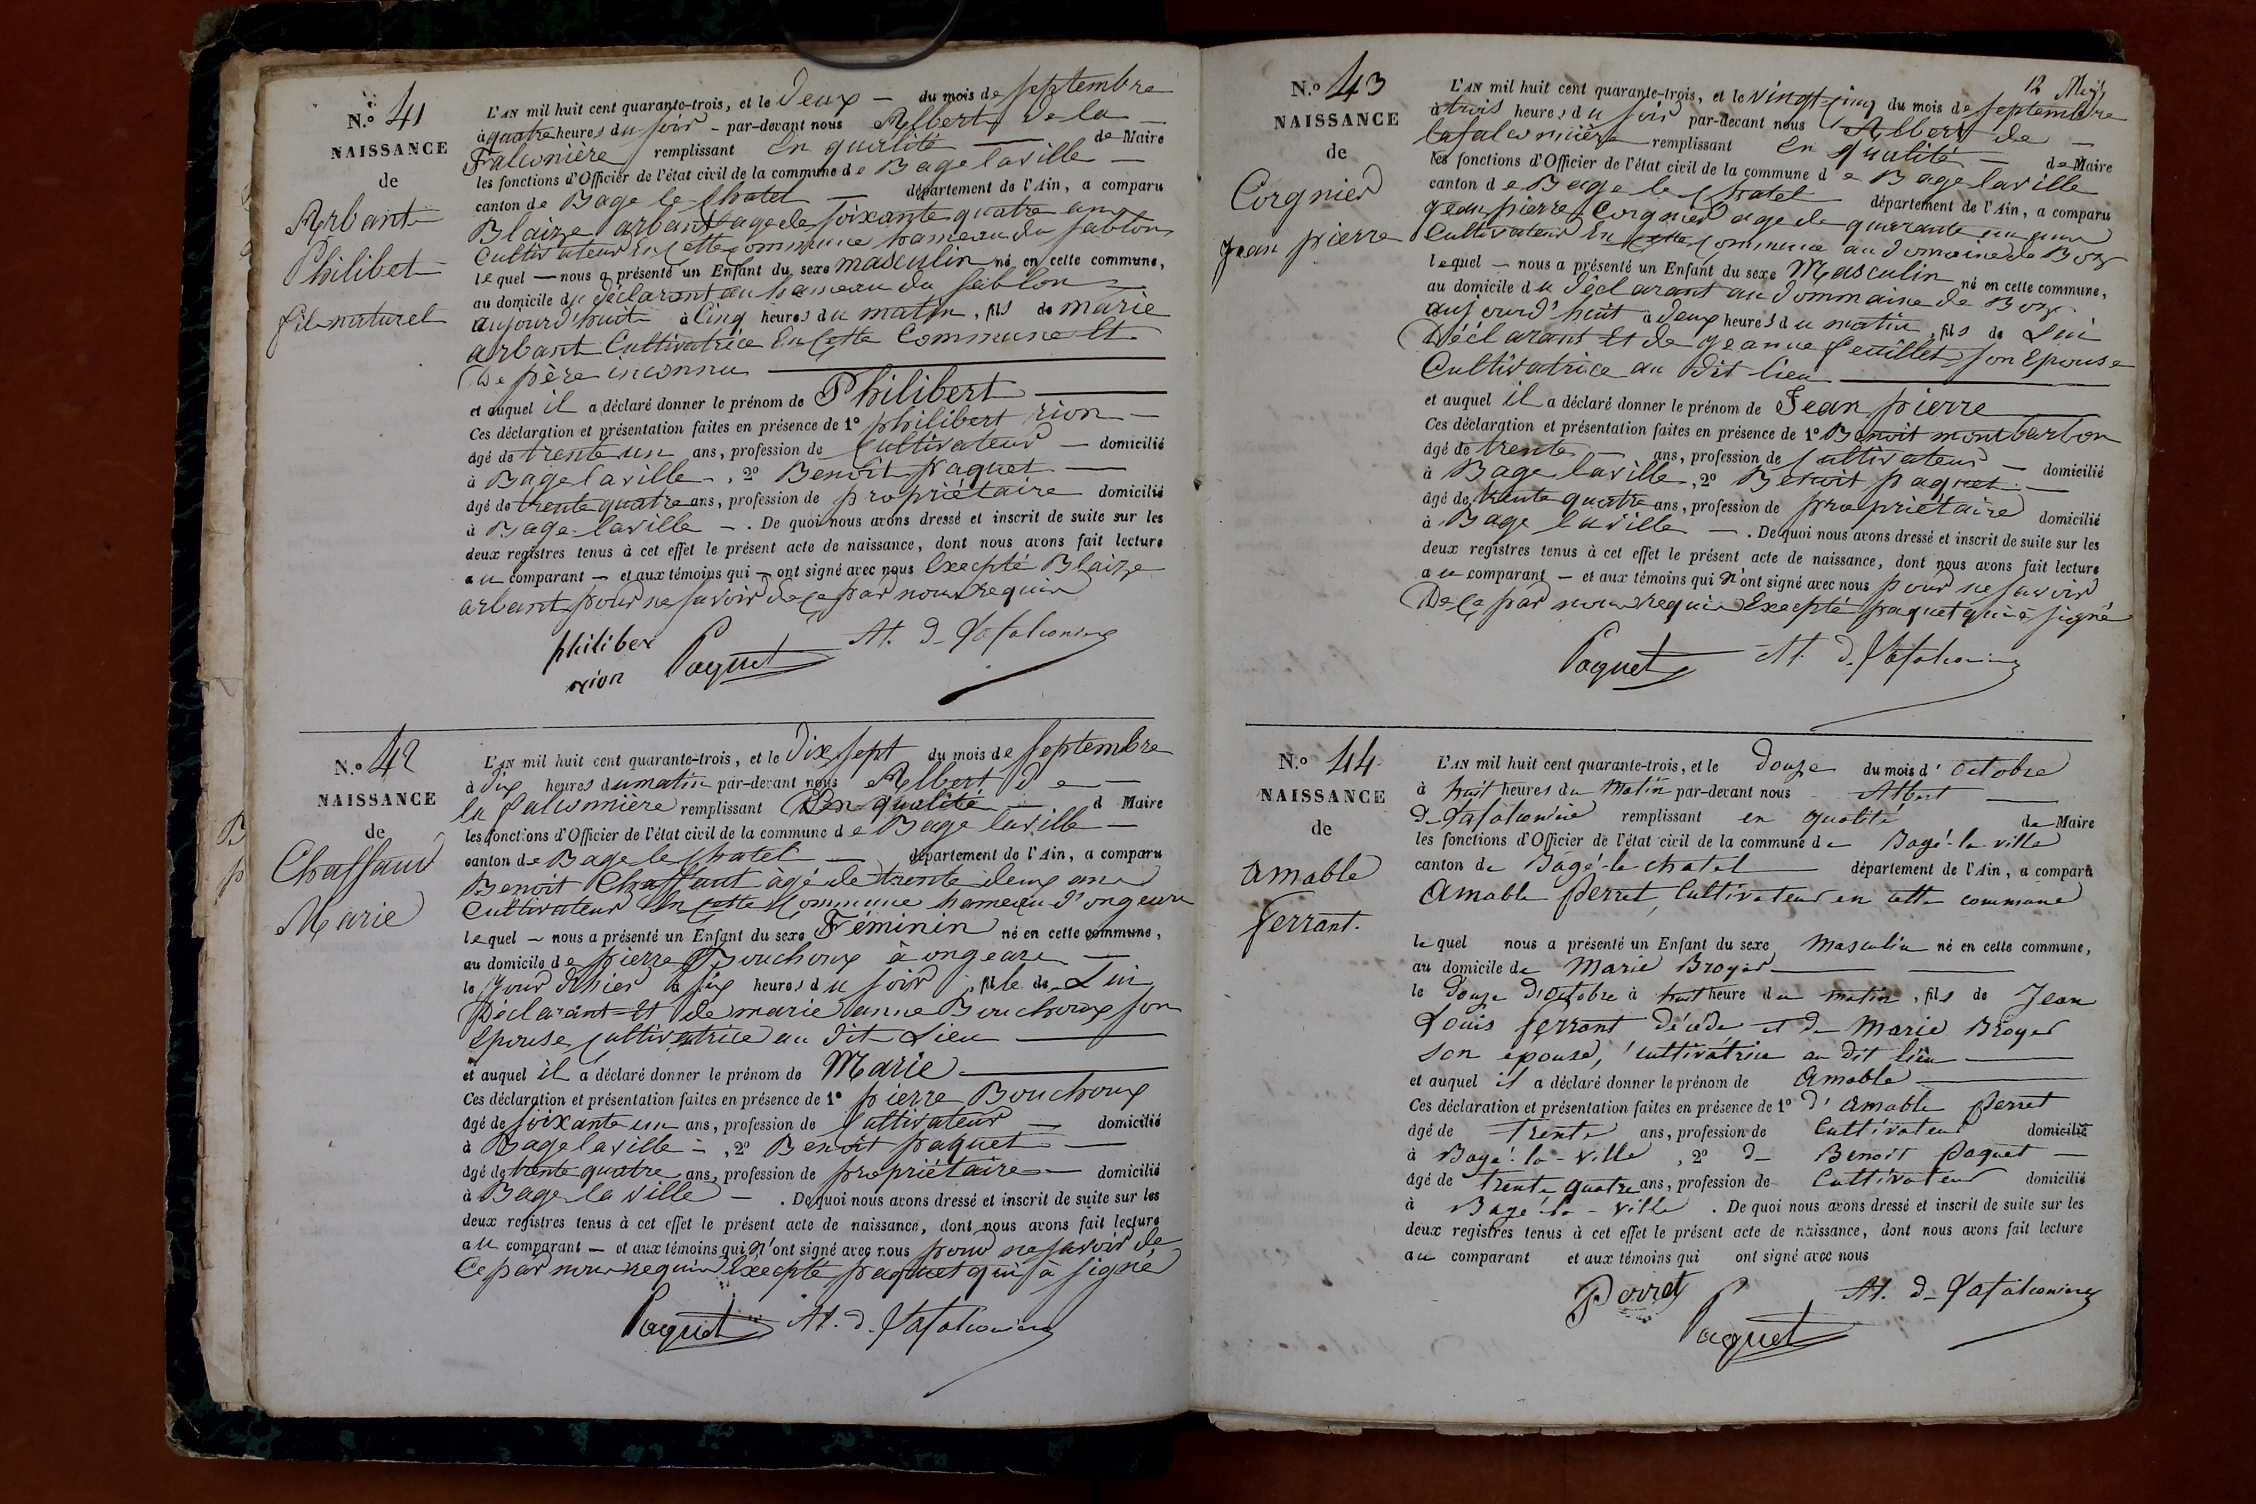 N.o 41
NAISSANCE
de
Arbant
Philibet
fils naturel
L'AN mil huit cent quarante-trois, et le Deux — du mois de septembre
à quatre heures du soir - par-devant nous Albert De la —
Falconière remplissant En qualité — de Maire
les fonctions d'Officier de l'état civil de la commune de Bage laville —
canton de Bage le Chatel — département de l'Ain, a comparu
Blaize arbant age de soixante quatre ans
Cultivateur En Cette Commune hameau du sablon
lequel — nous a présenté un Enfant du sexe masculin né en cette commune,
au domicile du déclarant au hameau du sablon
aujourd'huit à Cinq heures du matin, fils de marie
arbant Cultivatrice En Cette Commune Et
De père inconnu
et auquel il a déclaré donner le prénom de Philibert
Ces déclaration et présentation faites en présence de 1o philibert rion —
âgé de trente un ans, profession de Cultivateur — domicilié
à Bage laville -, 2o Benoit paquet —
âgé de trente quatre ans, profession de propriétaire domicilié
à Bage laville — . De quoi nous avons dressé et inscrit de suite sur les
deux registres tenus à cet effet le présent acte de naissance, dont nous avons fait lecture
au comparant — et aux témoins qui — ont signé avec nous Excepté Blaize
arbant pour ne savoir de ce par nous requis
philiber
rion
Paquet
At. D. Lafalconiere
N.o 42
NAISSANCE
de
Chaffaud
Marie
L'AN mil huit cent quarante-trois, et le Dix sept du mois de septembre
à dix heures du matin par-devant nous Albert De —
la falconnière remplissant En qualité — d Maire
les fonctions d'Officier de l'état civil de la commune de Bage laville —
canton de Bage le Chatel — département de l'Ain, a comparu
Benoit Chaffaut âgé de trente deux ans
Cultivateur En Cette Commune hameau d'ongeare
lequel — nous a présenté un Enfant du sexe Féminin né en cette commune,
au domicile de pierre Bouchoux à ongeare —
le jour d'hier à six heures du soir, fille de Lui
Déclarant Et de marie anne Bouchoux son
Epouse Cultivatrice au dit Lieu
et auquel il a déclaré donner le prénom de Marie
Ces déclaration et présentation faites en présence de 1o pierre Bouchoux
âgé de soixante un ans, profession de Cultivateur — domicilié
à Bage laville -, 2o Benoit paquet —
âgé de trente quatre ans, profession de propriétaire — domicilié
à Bage la ville — . De quoi nous avons dressé et inscrit de suite sur les
deux registres tenus à cet effet le présent acte de naissance, dont nous avons fait lecture
au comparant — et aux témoins qui N'ont signé avec nous pour ne savoir de
Ce par nous requis Excepté paquet qui à signé
Paquet
At. D. Lafalconiere
12
N.o 43
NAISSANCE
de
Corgnier
Jean pierre
L'AN mil huit cent quarante-trois, et le vingt cinq du mois de septembre
à trois heures du soir par-devant nous Albert de —
lafalconnière remplissant En qualité — de Maire
les fonctions d'Officier de l'état civil de la commune de Bage laville
canton de Bage le Chatel département de l'Ain, a comparu
Jean pierre Corgnier age de quarante un ans
Cultivateur En Cette Commune au Domaine de Boz
lequel — nous a présenté un Enfant du sexe Masculin né en cette commune,
au domicile du Déclarant au Dommaine de Boz
aujourd'huit à deux heures du matin, fils de Lui
Déclarant Et de Jeanne feuillet son Epouse
Cultivatrice au dit lieu
et auquel il a déclaré donner le prénom de Jean pierre
Ces déclaration et présentation faites en présence de 1o Benoit montbarbon
âgé de trente — ans, profession de Cultivateur — domicilié
à Bage laville, 2o Benoit paquet —
âgé de trente quatre ans, profession de propriétaire domicilié
à Bage laville — . De quoi nous avons dressé et inscrit de suite sur les
deux registres tenus à cet effet le présent acte de naissance, dont nous avons fait lecture
au comparant — et aux témoins qui N'ont signé avec nous pour ne savoir
De Ce par nous requis Excepté paquet qui à signé
Paquet
At. D. Lafalconiere
N.o 44
NAISSANCE
de
Amable
ferrant.
L'AN mil huit cent quarante-trois, et le Douze du mois d'octobre
à huit heures du Matin par-devant nous Albert —
De Lafalconière remplissant en qualité de Maire
les fonctions d'Officier de l'état civil de la commune de Bagé-la-ville
canton de Bagé-le-chatel — département de l'Ain, a comparu
Amable Perret, Cultivateur en cette commune
lequel nous a présenté un Enfant du sexe Masculin né en cette commune,
au domicile de Marie Broyer
le Douze D'octobre à huit heure du matin, fils de Jean
Louis ferrant décédé et de Marie Broyer
son épouse, cultivatrice au dit lieu
et auquel il a déclaré donner le prénom de Amable
Ces déclaration et présentation faites en présence de 1o d'Amable Perret
âgé de trente ans, profession de Cultivateur domicilié
à Bagé-la-Ville, 2o De Benoit Paquet —
âgé de trente quatre ans, profession de Cultivateur domicilié
à Bagé-la-Ville . De quoi nous avons dressé et inscrit de suite sur les
deux registres tenus à cet effet le présent acte de naissance, dont nous avons fait lecture
au comparant et aux témoins qui ont signé avec nous
Perret
Paquet
At. D. Lafalconiere